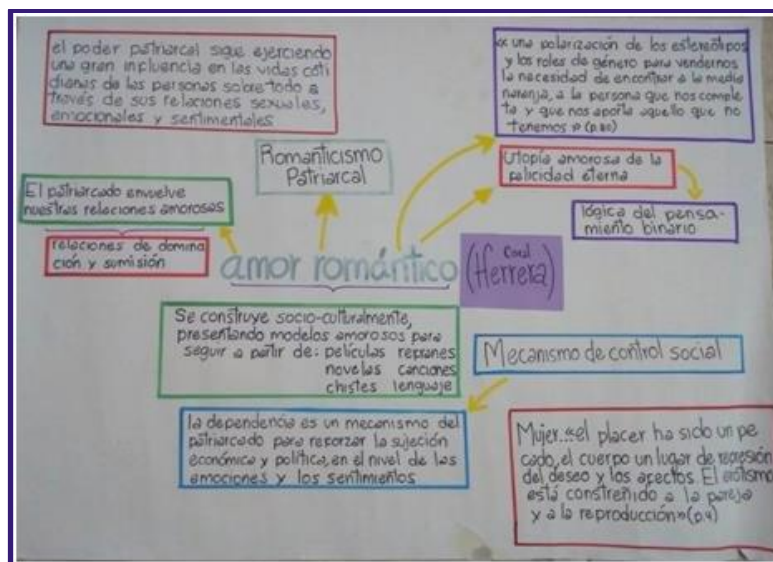 el poder patriarcal sigue ejerciendo
una gran influencia en las vidas coti
dianas de las personas sobre todo a
través de sus relaciones sexuales,
emocionales y sentimentales
« una polarización de los estereotipos
y los roles de género para vendernos
la necesidad de encontrar a la media
naranja, a la persona que nos comple
ta y que nos aporta aquello que no
tenemos » (p.80)
Romanticismo
Patriarcal
Utopía amorosa de la
felicidad eterna
El patriarcado envuelve
nuestras relaciones amorosas
lógica del pensa-
miento binario
relaciones de domina
ción y sumisión
amor romántico
(Coral
Herrera)
Se construye socio-culturalmente,
presentando modelos amorosos para
seguir a partir de: películas refranes
novelas canciones
chistes lenguaje
Mecanismo de control social
la dependencia es un mecanismo del
patriarcado para reforzar la sujeción
económica y política, en el nivel de las
emociones y los sentimientos
Mujer...«el placer ha sido un pe
cado, el cuerpo un lugar de represión
del deseo y los afectos. El erotismo
está constreñido a la pareja
y a la reproducción» (p.4)